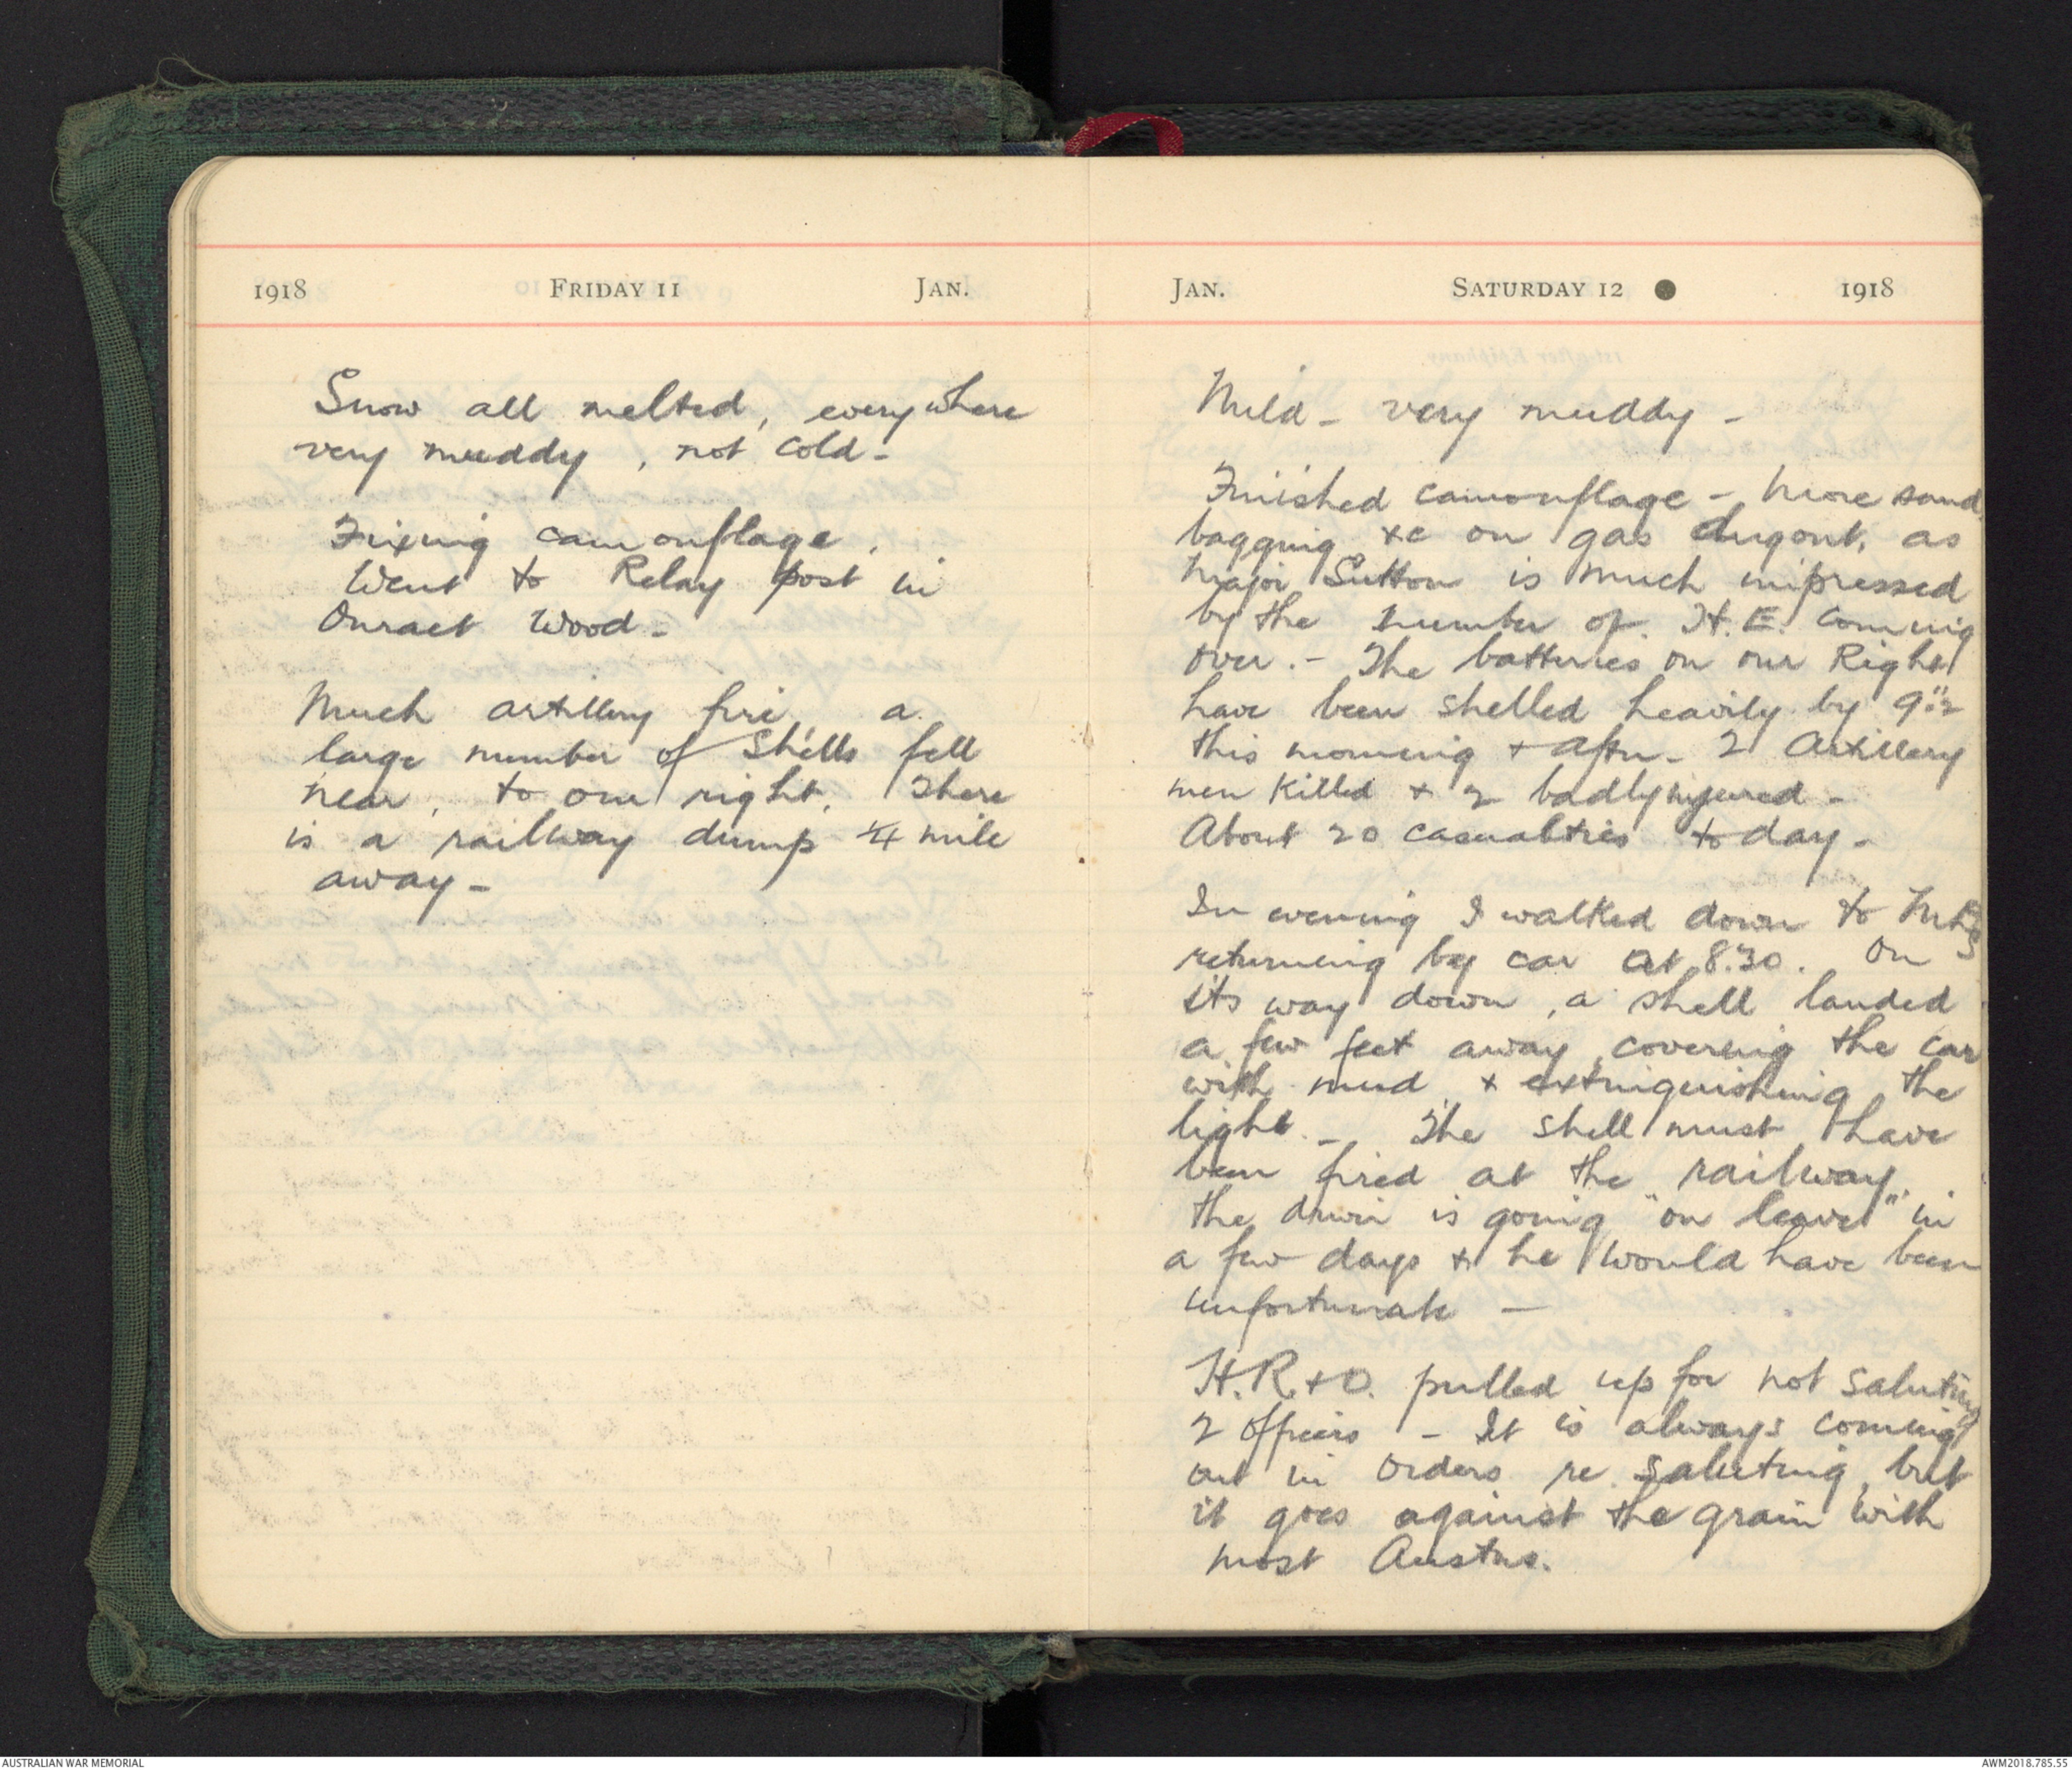 1918 FRIDAY 11 JAN.
Snow all melted, everywhere
very muddy, not cold -
Fixing camouflage.
Went to Relay post in
Onraet Wood -
Much artillery fire, a
large number of shells fell
near, to our right. There
is a railway dump 1/4 mile
away -
JAN. SATURDAY 12 ● 1918
Mild - very muddy -
Finished camouflage - more sand
bagging &c on gas dugout, as
Major Sutton is much impressed
by the number of H.E. coming
over. - The batteries on our Right
have been shelled heavily by 9."2
this morning + aftn. 2 Artillery
men killed + 2 badly injured -
About 20 casualties today -
In evening I walked down to
returning by car at 8.30. On
its way down, a shell landed
a few feet away, covering the car
with mud + extinguishing the
light - The shell must have
been fired at the railway.
the driver is going "on leave" in
a few days & he would have been
unfortunate -
H.R. + O. pulled up for not saluting
2 officers - It is always coming
out in orders re saluting, but
it goes against the grain with
most Austns.
AUSTRALIAN WAR MEMORIAL
AWM2018.785.55